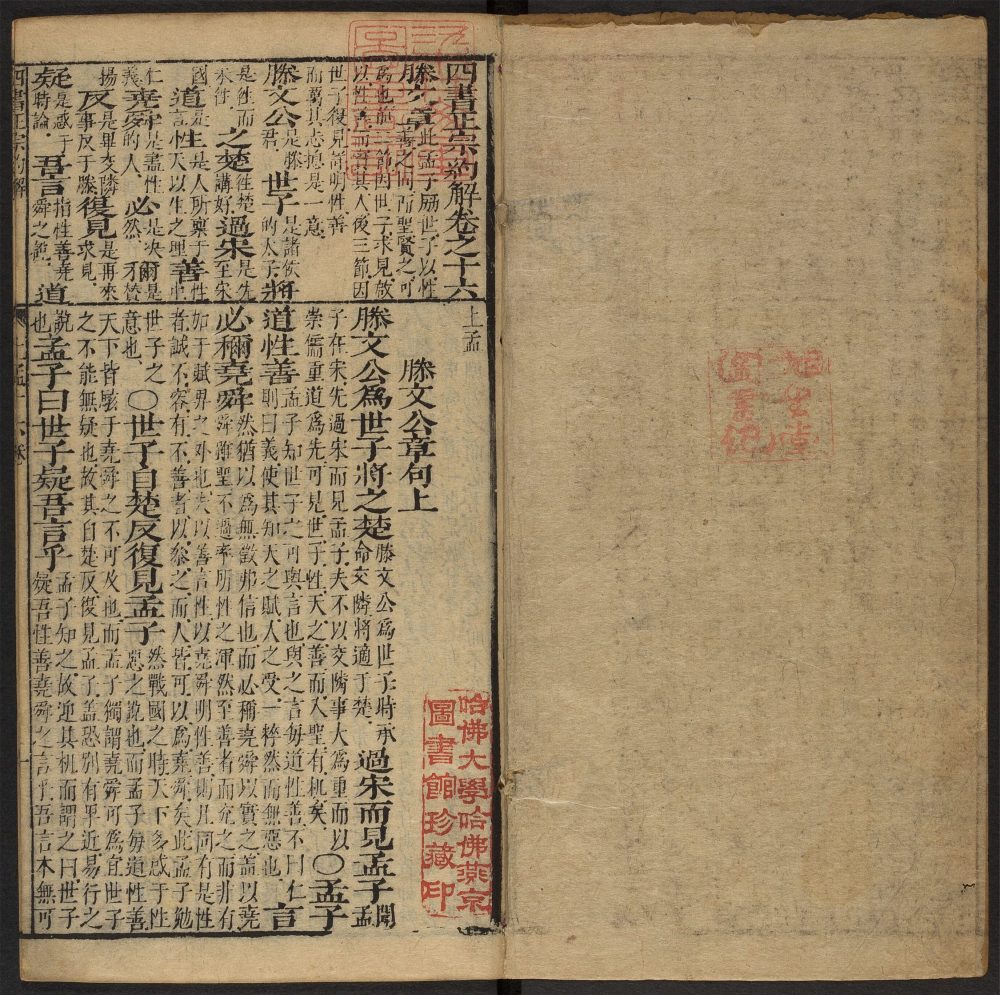 四書正宗約解卷之十六
滕文章此孟子勵世子以性
善之同而聖賢之可
為也前二節因世子求見
以性善而其人後三節因
世子復見而明性善
而萬其志總是一意
滕文公是滕君世子是諸侯的太子將
是往而未往之楚往楚講好過宋是先至宋
國道是言性是人所稟于天以生之理善性
仁義堯舜是盡性的人必是決然稱是
揚反是畢交隣事反于滕復見是再來求見
疑是惑于時論吾言指性善堯舜之說道
四書正宗約解
上孟
滕文公章句上
滕文公為世子將之楚滕文公為世子時承命交隣將適于楚過宋而見孟子聞孟
子在宋先過宋而見孟子夫不以交隣事大為重而以
崇儒重道為先可見世子性天之善而入聖有机矣〇孟子
道性善孟子知世子之可與言也與之言每道性善不曰仁
則曰義使其知天之賦人之受一粹然而無惡也言
必稱堯舜然猶以為無徵弗信也而必稱堯舜以實之蓋以堯
舜雖聖不過率所性之渾然至善者而充之而非有
如于賦畀之外也夫以善言性以堯舜明性善則凡同有是性
者誠不容有不善者以參之而人皆可以為堯舜矣此孟子勉
世子之意也〇世子自楚反復見孟子然戰國之時天下多惑于性
惡之說也而孟子每道性善
天下皆駭于堯舜之不可及也而孟子獨謂堯舜可為宜世子
之不能無疑也故其自楚反復見孟子蓋恐別有卑近易行之
說也孟子曰世子疑吾言乎孟子知之故迎其机而謂之曰世子
疑吾性善堯舜之言乎吾言本無可
哈佛大學哈佛燕京
圖書館珍藏印